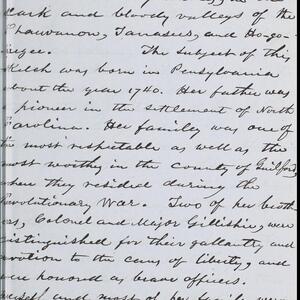 dark and bloody valleys of the
Shauvanon, Tanasees, and Ho-go-
hegee. The subject of this
sketch was born in Pensylvania
about the year 1740. Her father was
a pioneer in the settlement of North
Carolina. Her family was one of
the most respectable as well as the
most worthy in the county of Guilford,
where they resided during the
Revolutionary War. Two of her broth
ers, Colonel and Major Gillispie, were
distinguished for their gallantry and
devotion to the cause of liberty, and
were honored as brave officers.
herself and most of her